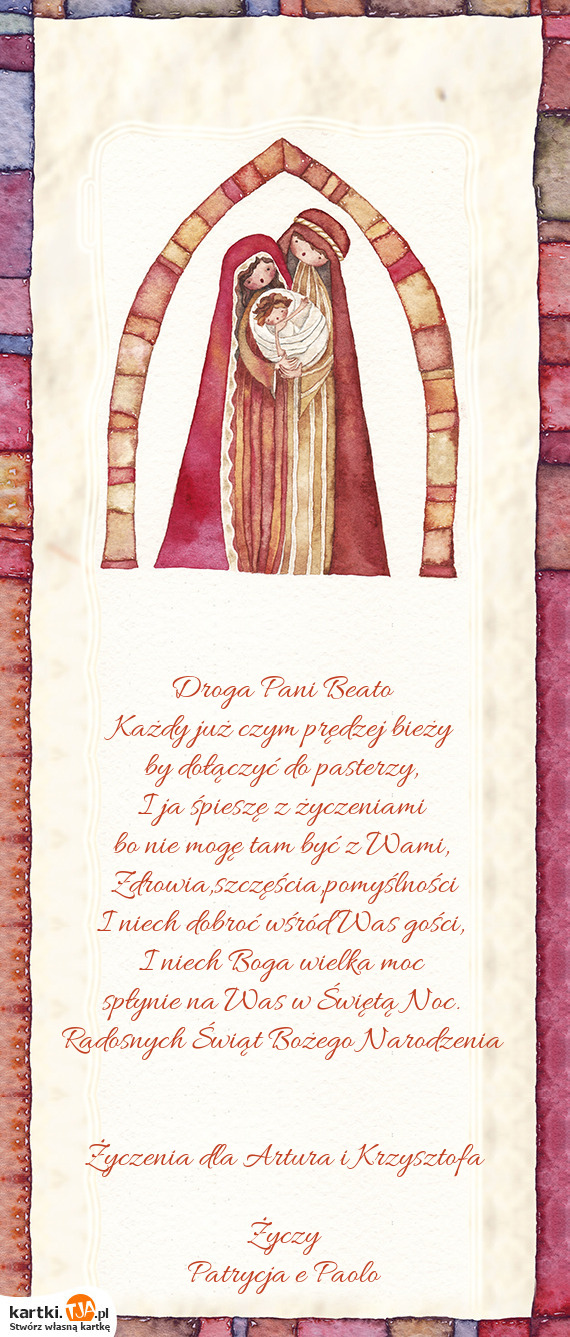 Droga Pani Beato
Każdy już czym prędzej bieży
by dołączyć do pasterzy,
I ja śpieszę z życzeniami
bo nie mogę tam być z Wami,
Zdrowia,szczęścia,pomyślności
I niech dobroć wśród Was gości,
I niech Boga wielka moc
spłynie na Was w Świętą Noc.
Radosnych Świąt Bożego Narodzenia
Życzenia dla Artura i Krzysztofa
Życzy
Patrycja e Paolo
kartki.TJA.pl
Stwórz własną kartkę